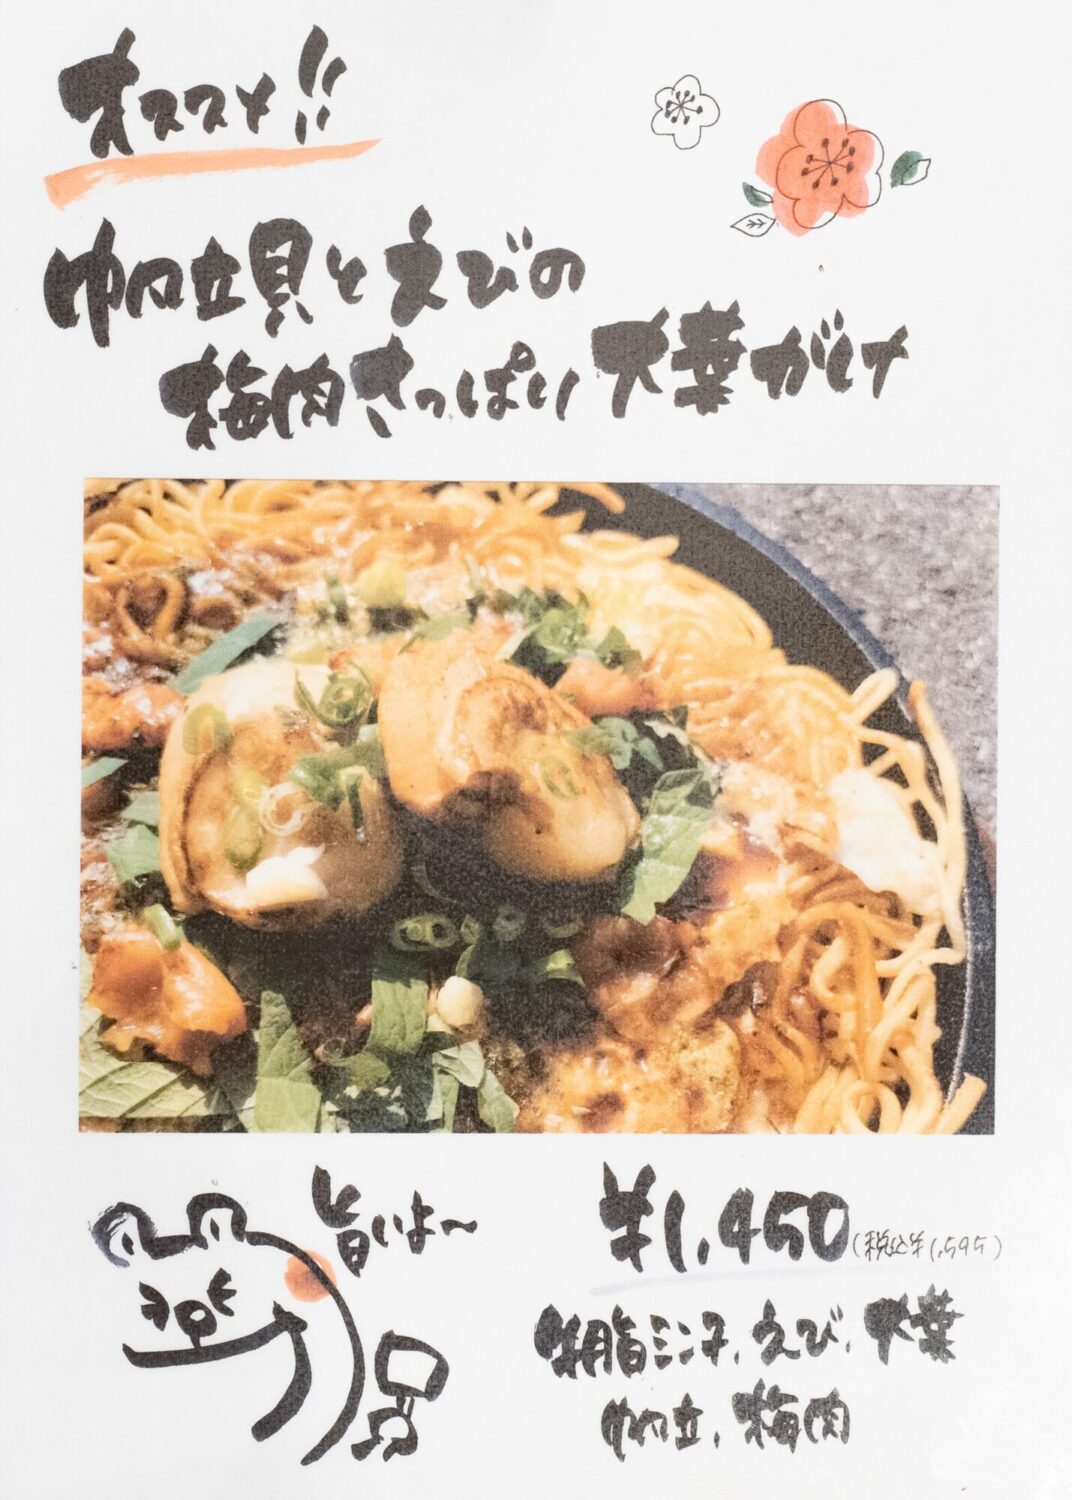 オススメ!!
帆立貝とえびの
梅肉さっぱり大葉がけ
旨いよ〜
¥1,450(税込¥1,595)
豚脂ミンチ、えび、大葉
帆立、梅肉